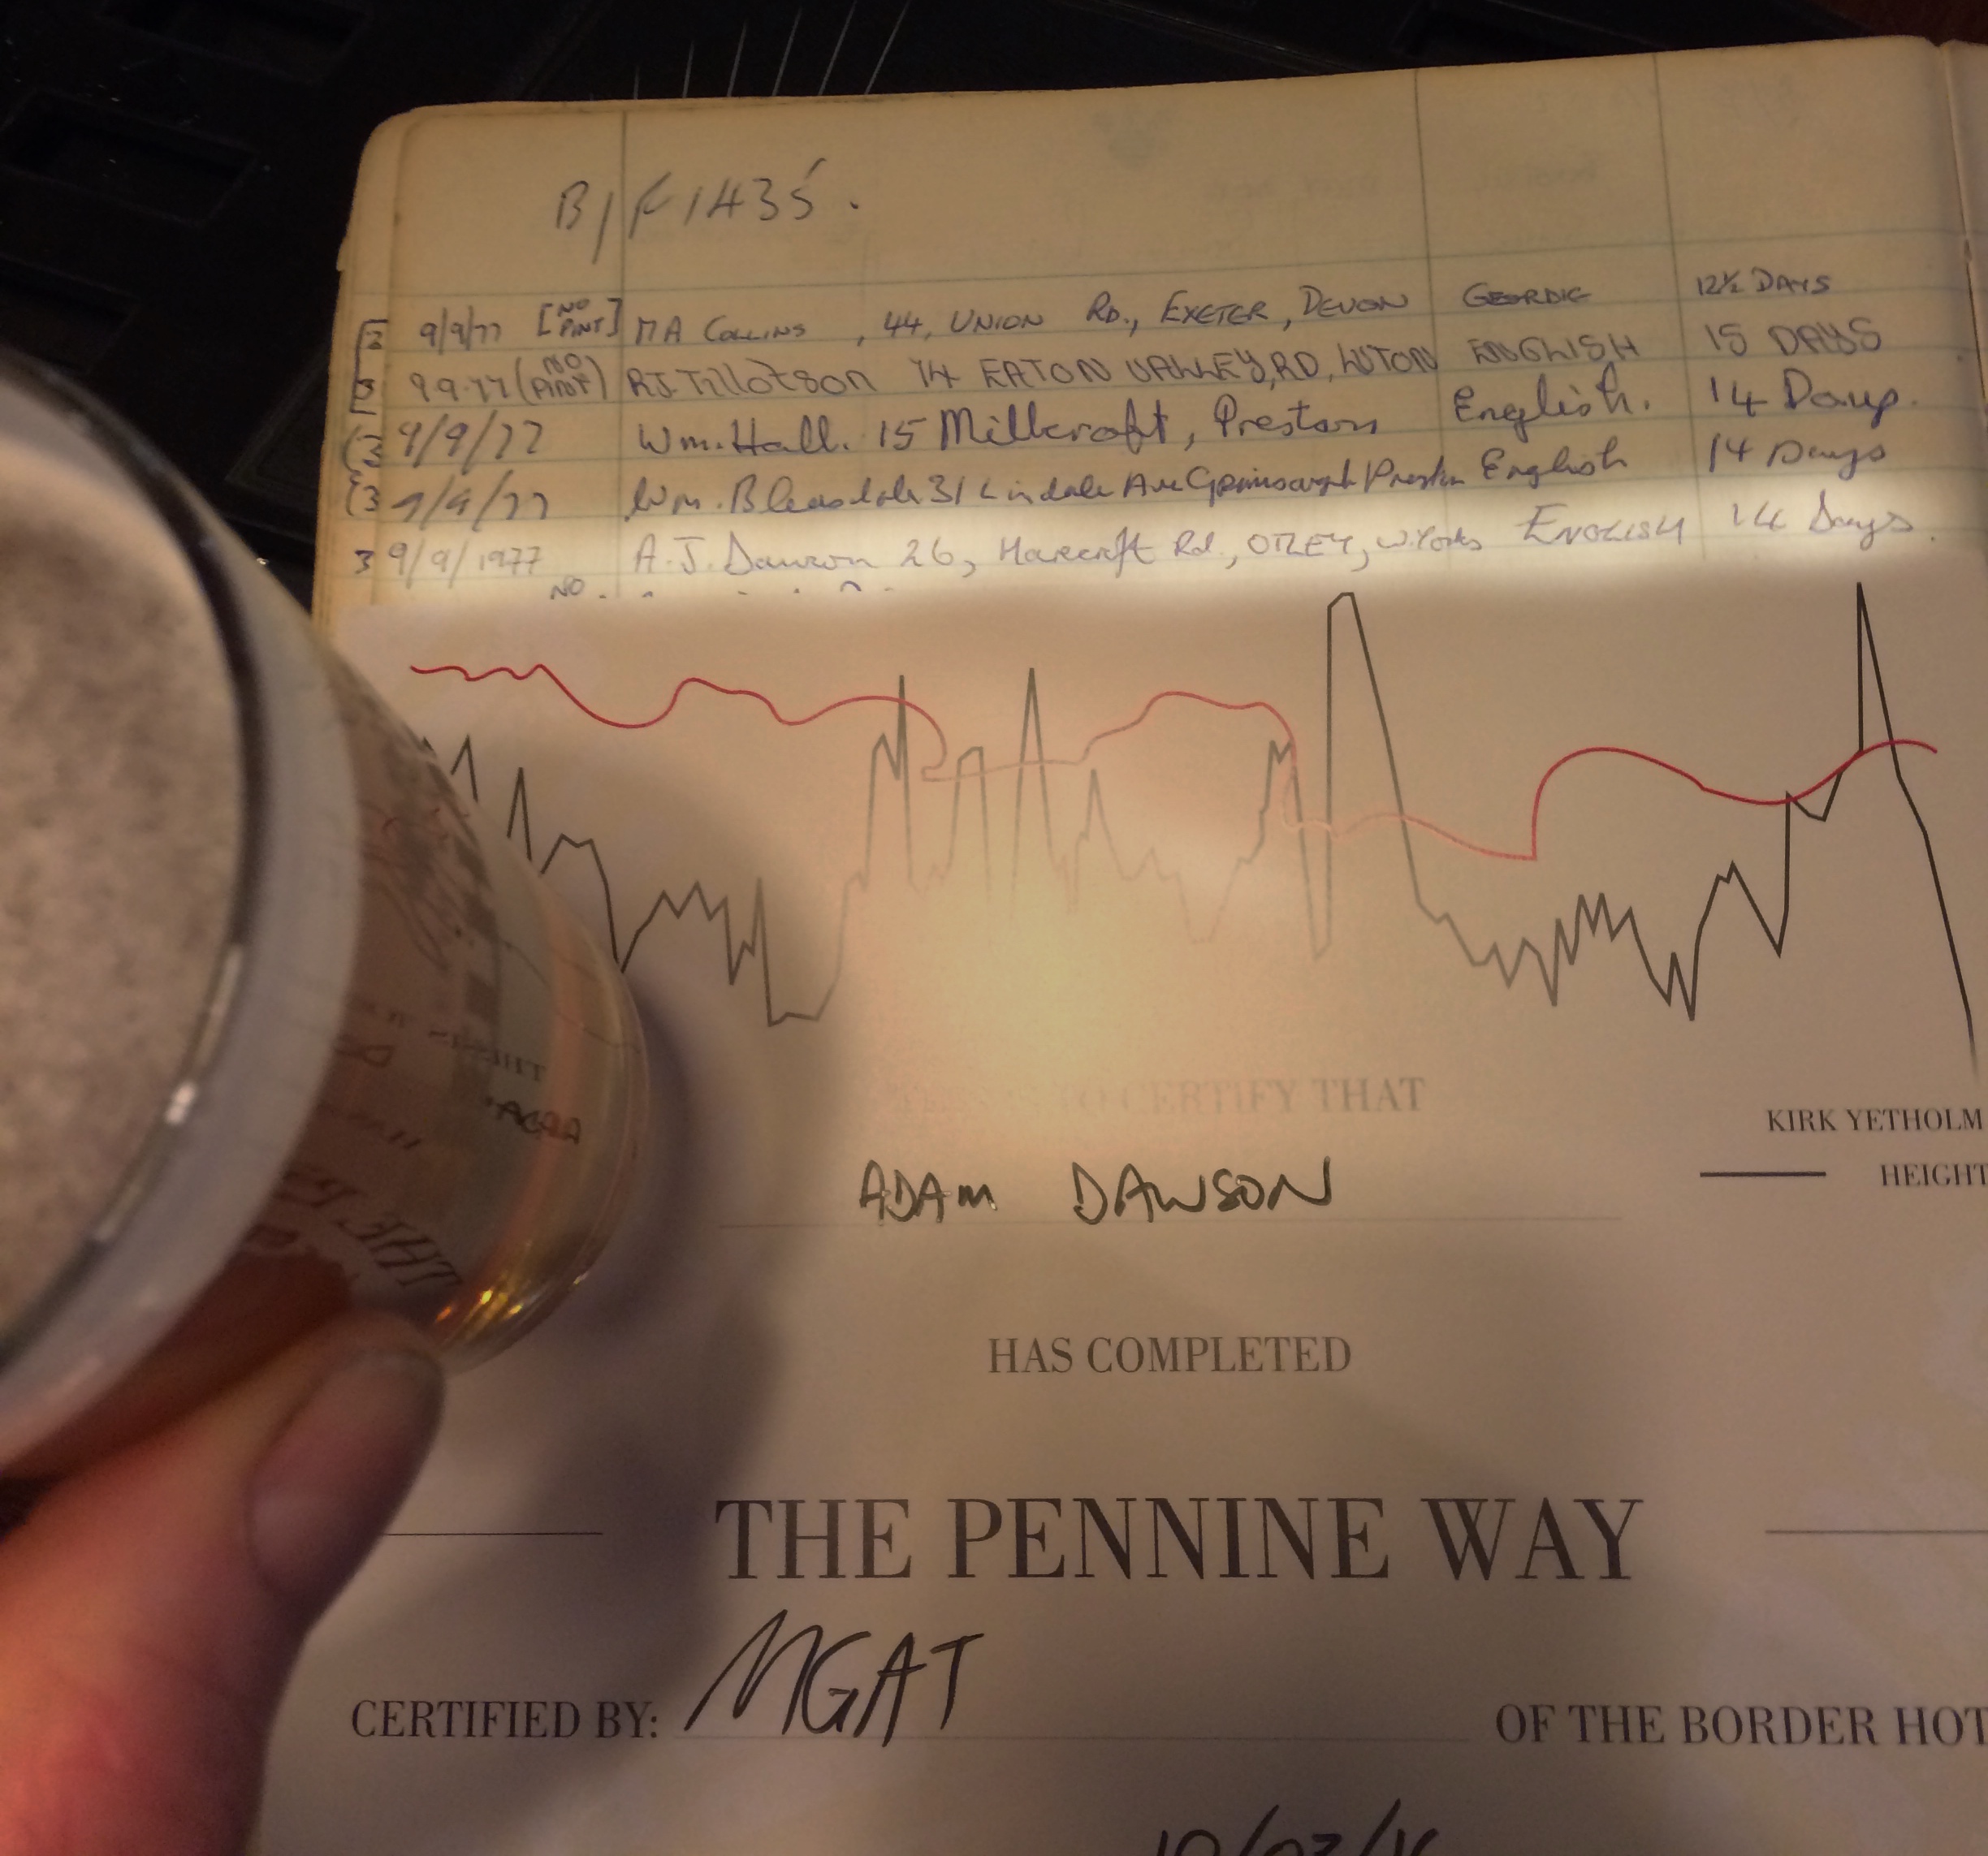 B/F 1435.
9/9/77 [NO PINT] M A COLLINS, 44, UNION RD., EXETER, DEVON GEORDIE 12½ DAYS
9.9.77 (NO PINT) R.J. Tillotson 74 EATON VALLEY, RD, LUTON ENGLISH 15 DAYS
(3 9/9/77 Wm. Hall. 15 Millcroft, Preston English. 14 Days.
(3 9/9/77 Wm. Bleasdale 31 Lindale Ave Grimsargh Preston English 14 Days
3 9/9/1977 A.J. Dawson 26, Harecroft Rd., OTLEY, W. Yorks ENGLISH 14 Days.
NO
TO CERTIFY THAT
KIRK YETHOLM
HEIGHT
ADAM DAWSON
HAS COMPLETED
THE PENNINE WAY
CERTIFIED BY: MGAT OF THE BORDER HOT